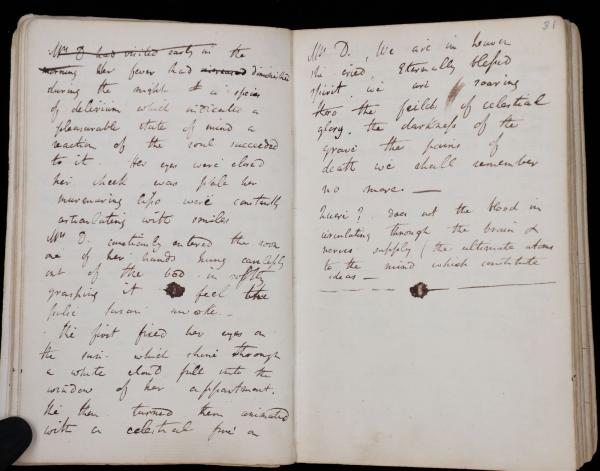 Mrs D had visited early in the
morning Her fever had diminished
during the night & a species
of delirium which indicates a
pleasurable state of mind a
reaction of the soul succeeded
to it. Her eyes were closed
her cheek was pale her
murmuring lips were constantly
articulating with smiles
Mrs D. cautiously entered the room
one of her hands hung carelessly
out of the bed in softly
grasping it to feel the
pulse Susan awoke. —
She first fixed her eyes on
the sun which shone through
a white cloud full into the
window of her appartment.
She then turned them animated
with a celestial fire on
81
Mrs D., We are in heaven
she cried, Eternally blessed
spirit we are soaring
thro the feilds of celestial
glory. the darkness of the
grave the pains of
death we shall remember
no more. —
Quere? does not the blood in
circulating through the brain &
nerves supply (the alternate atoms
to the mind which constitute
ideas —